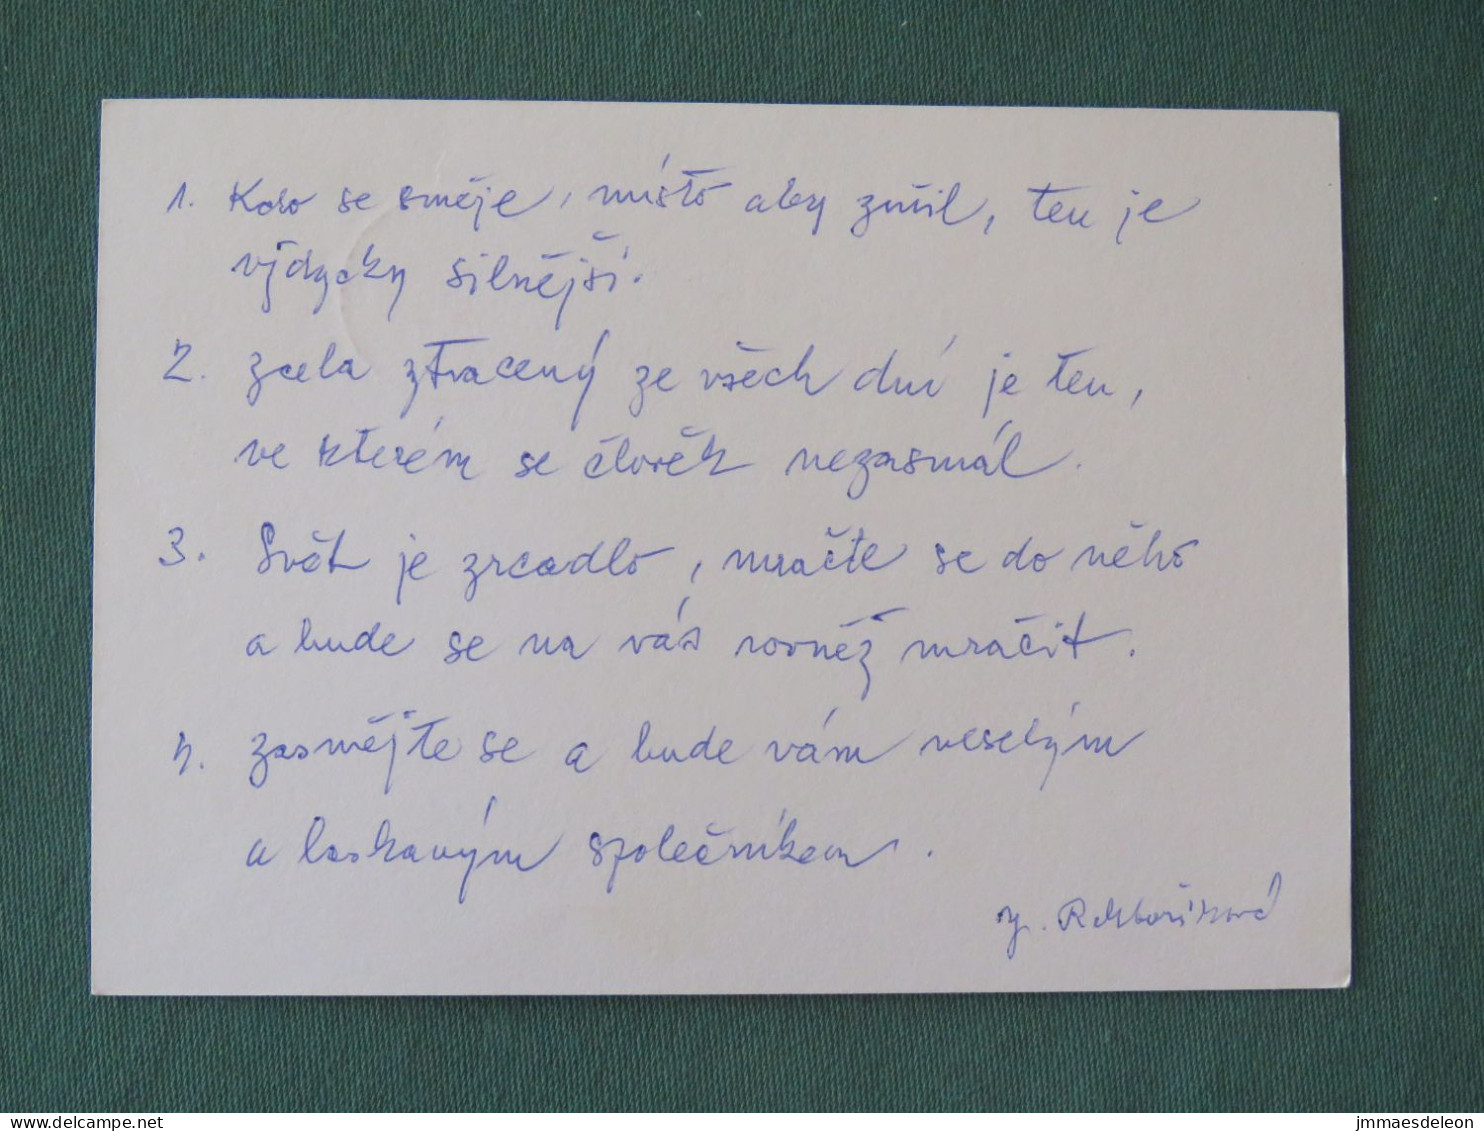 1. Kdo se směje, místo aby zuřil, ten je
vždycky silnější.
2. zcela ztracený ze všech dní je ten,
ve kterém se člověk nezasmál.
3. Svět je zrcadlo, mračte se do něho
a bude se na vás rovněž mračit.
4. zasmějte se a bude vám veselým
a laskavým společníkem.
delcampe.net
jmmaesdeleon